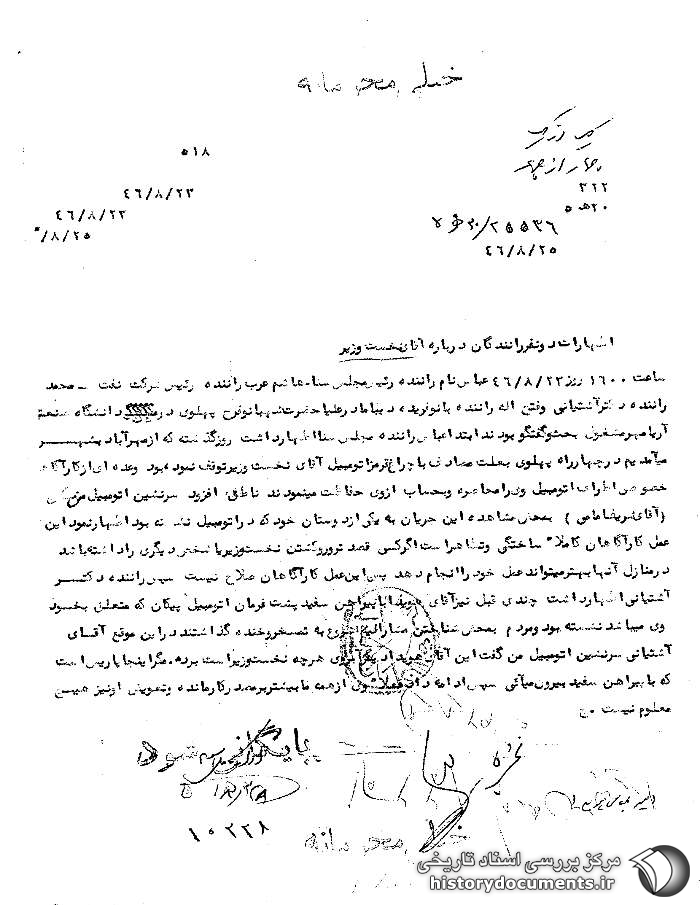 خیلی محرمانه
۵۱۸
۳۲۲
۲۰ هـ ۵
۴۶/۸/۲۳
۴۶/۸/۲۳
/۸/۲۵
۲۰/۲۵۵۳۶ هـ
۴۶/۸/۲۵
اظهارات دو نفر رانندگان درباره آقای نخست وزیر
ساعت ۱۶۰۰ روز ۴۶/۸/۲۳ عباس نام راننده رئیس مجلس سنا ـ هاشم عرب راننده رئیس شرکت نفت ـ محمد
راننده دکتر آشتیانی وفتن اله راننده بانو فریده دیبا مادر علیاحضرت شهبانو فرح پهلوی در دانشگاه صنعتی
آریامهر مشغول بحث و گفتگو بودند ابتدا عباس راننده مجلس سنا اظهار داشت روز گذشته که از مهرآباد بشهر
میآمدیم در چهارراه پهلوی بعلت مصادف با چراغ قرمز اتومبیل آقای نخست وزیر توقف نموده بود وعده ای از کارآگاهان
خصوص اطراف اتومبیل ویرا محاصره وبحساب از وی حفاظت مینمودند ناطق افزود سرنشین اتومبیل من
(آقای شریف امامی) بمحض مشاهده این جریان به یکی از دوستان خود که در اتومبیل نشسته بود اظهار نمود این
عمل کارآگاهان کاملا" ساختگی وتظاهر است اگر کسی قصد ترور و کشتن نخست وزیر یا شخص دیگری را داشته باشد
در منازل آنها بهتر میتواند عمل خود را انجام دهد پس این عمل کارآگاهان صلاح نیست سپس راننده دکتر
آشتیانی اظهار داشت چندی قبل نیز آقای هویدا با پیراهن سفید پشت فرمان اتومبیل پیکان که متعلق بخود
وی میباشد نشسته بود ومردم بمحض شناختن مشارالیه شروع به تمسخر وخنده گذاشتند در این موقع آقای
آشتیانی سرنشین اتومبیل من گفت این آقای هویدا دیگر آبروی هرچه نخست وزیر است برده، مگر اینجا پاریس است
که با پیراهن سفید بیرون میآئی سپس ادامه داد از همه ما بیشتر بر مصدر کار مانده وتعویض او نیز هیچ
معلوم نیست ج
بایگانی شود
۱۰۲۲۸
خیلی محرمانه
مرکز بررسی اسناد تاریخی
historydocuments.ir